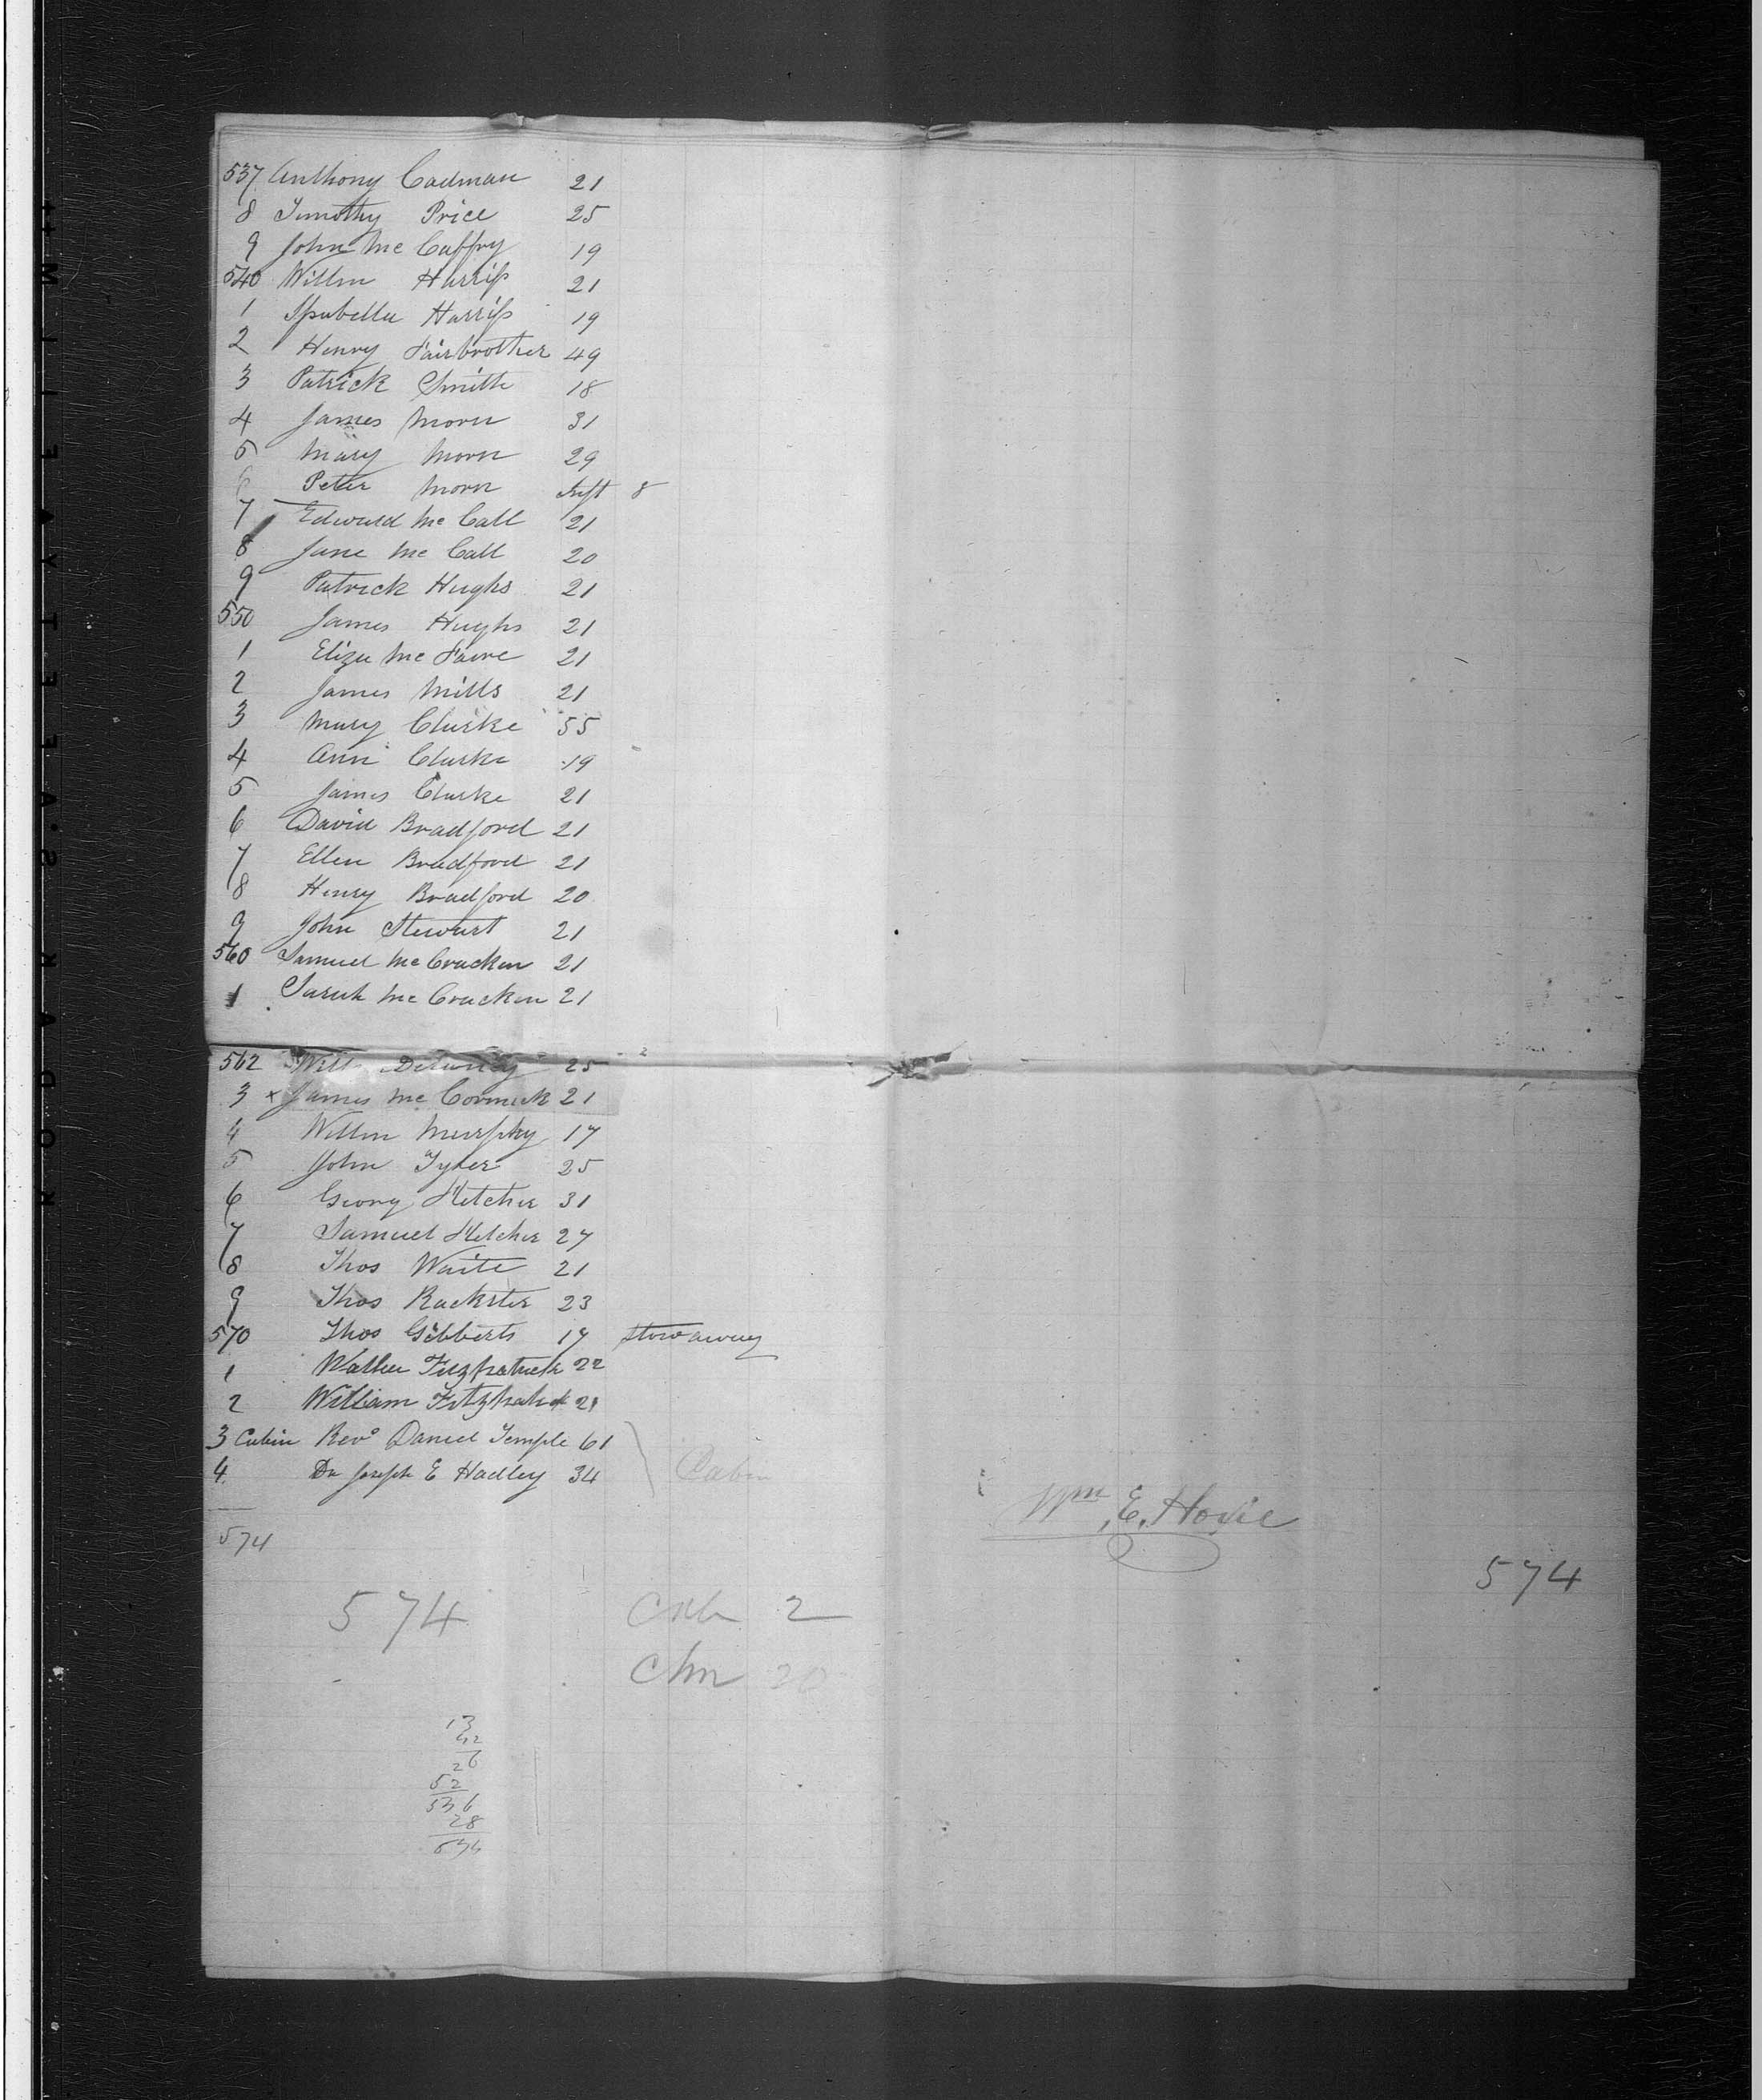 537 Anthony Cadman 21
8 Timothy Price 25
9 John McCaffry 19
540 Willm Harriss 21
1 Isabella Harriss 19
2 Henry Fairbrother 49
3 Patrick Smith 18
4 James Morn 31
5 Mary Morn 29
6 Peter Morn Inft 8
7 Edward McCall 21
8 Jane McCall 20
9 Patrick Hughs 21
550 James Hughs 21
1 Eliza Mc 21
2 James Mills 21
3 Mary Clarke 55
4 Ann Clarke 19
5 James Clarke 21
6 David Bradford 21
7 Ellen Bradford 21
8 Henry Bradford 20
9 John Stewart 21
560 Samuel McCracken 21
1 Sarah McCracken 21
562 Willm 25
3 x James McCormick 21
4 Willm Murphy 17
5 John Tyler 25
6 Georg Fletcher 31
7 Samuel Fletcher 27
8 Thos Waite 21
9 Thos Rackster 23
570 Thos Gibberts 17 stow away
1 Walter Fitzpatrick 22
2 William Fitzpatrick 21
3 Cabin Revd Daniel Temple 61
4 Dr Joseph E Hadley 34 Cabin
Wm. E. Hoxie
574
574
574 Cab 2
Chn 20
13
42
26
52
536
28
574